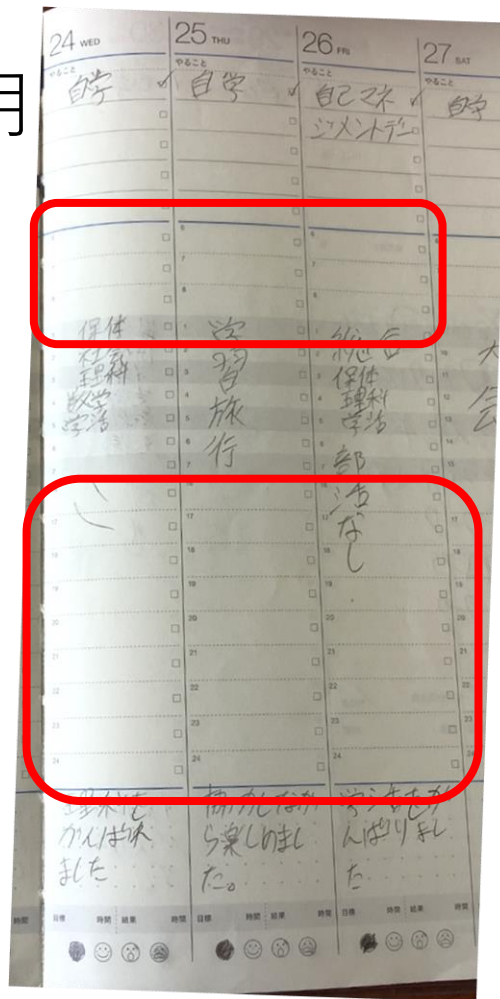 月
24 WED
やること
自学
保体
社会
理科
数学
学活
理科を
がんばり
ました
目標 時間 結果 時間
25 THU
やること
自学
6
7
8
1
2
3
4
5
6
7
学習旅行
17
18
19
20
21
22
23
24
ら楽しめまし
た。
目標 時間 結果 時間
26 FRI
やること
自己マネ
ジメントデー
総合
保体
理科
学活
部活なし
17
18
19
20
21
22
23
24
学活をが
んばりまし
た
目標 時間 結果 時間
27 SAT
やること
自学
大
会